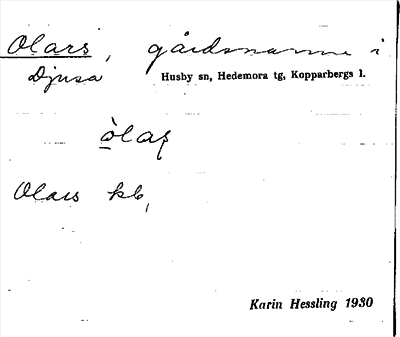 Olars, gårdsnamn i
Djusa Husby sn, Hedemora tg, Kopparbergs l.
òlaʂ
Olars kb,
Karin Hessling 1930